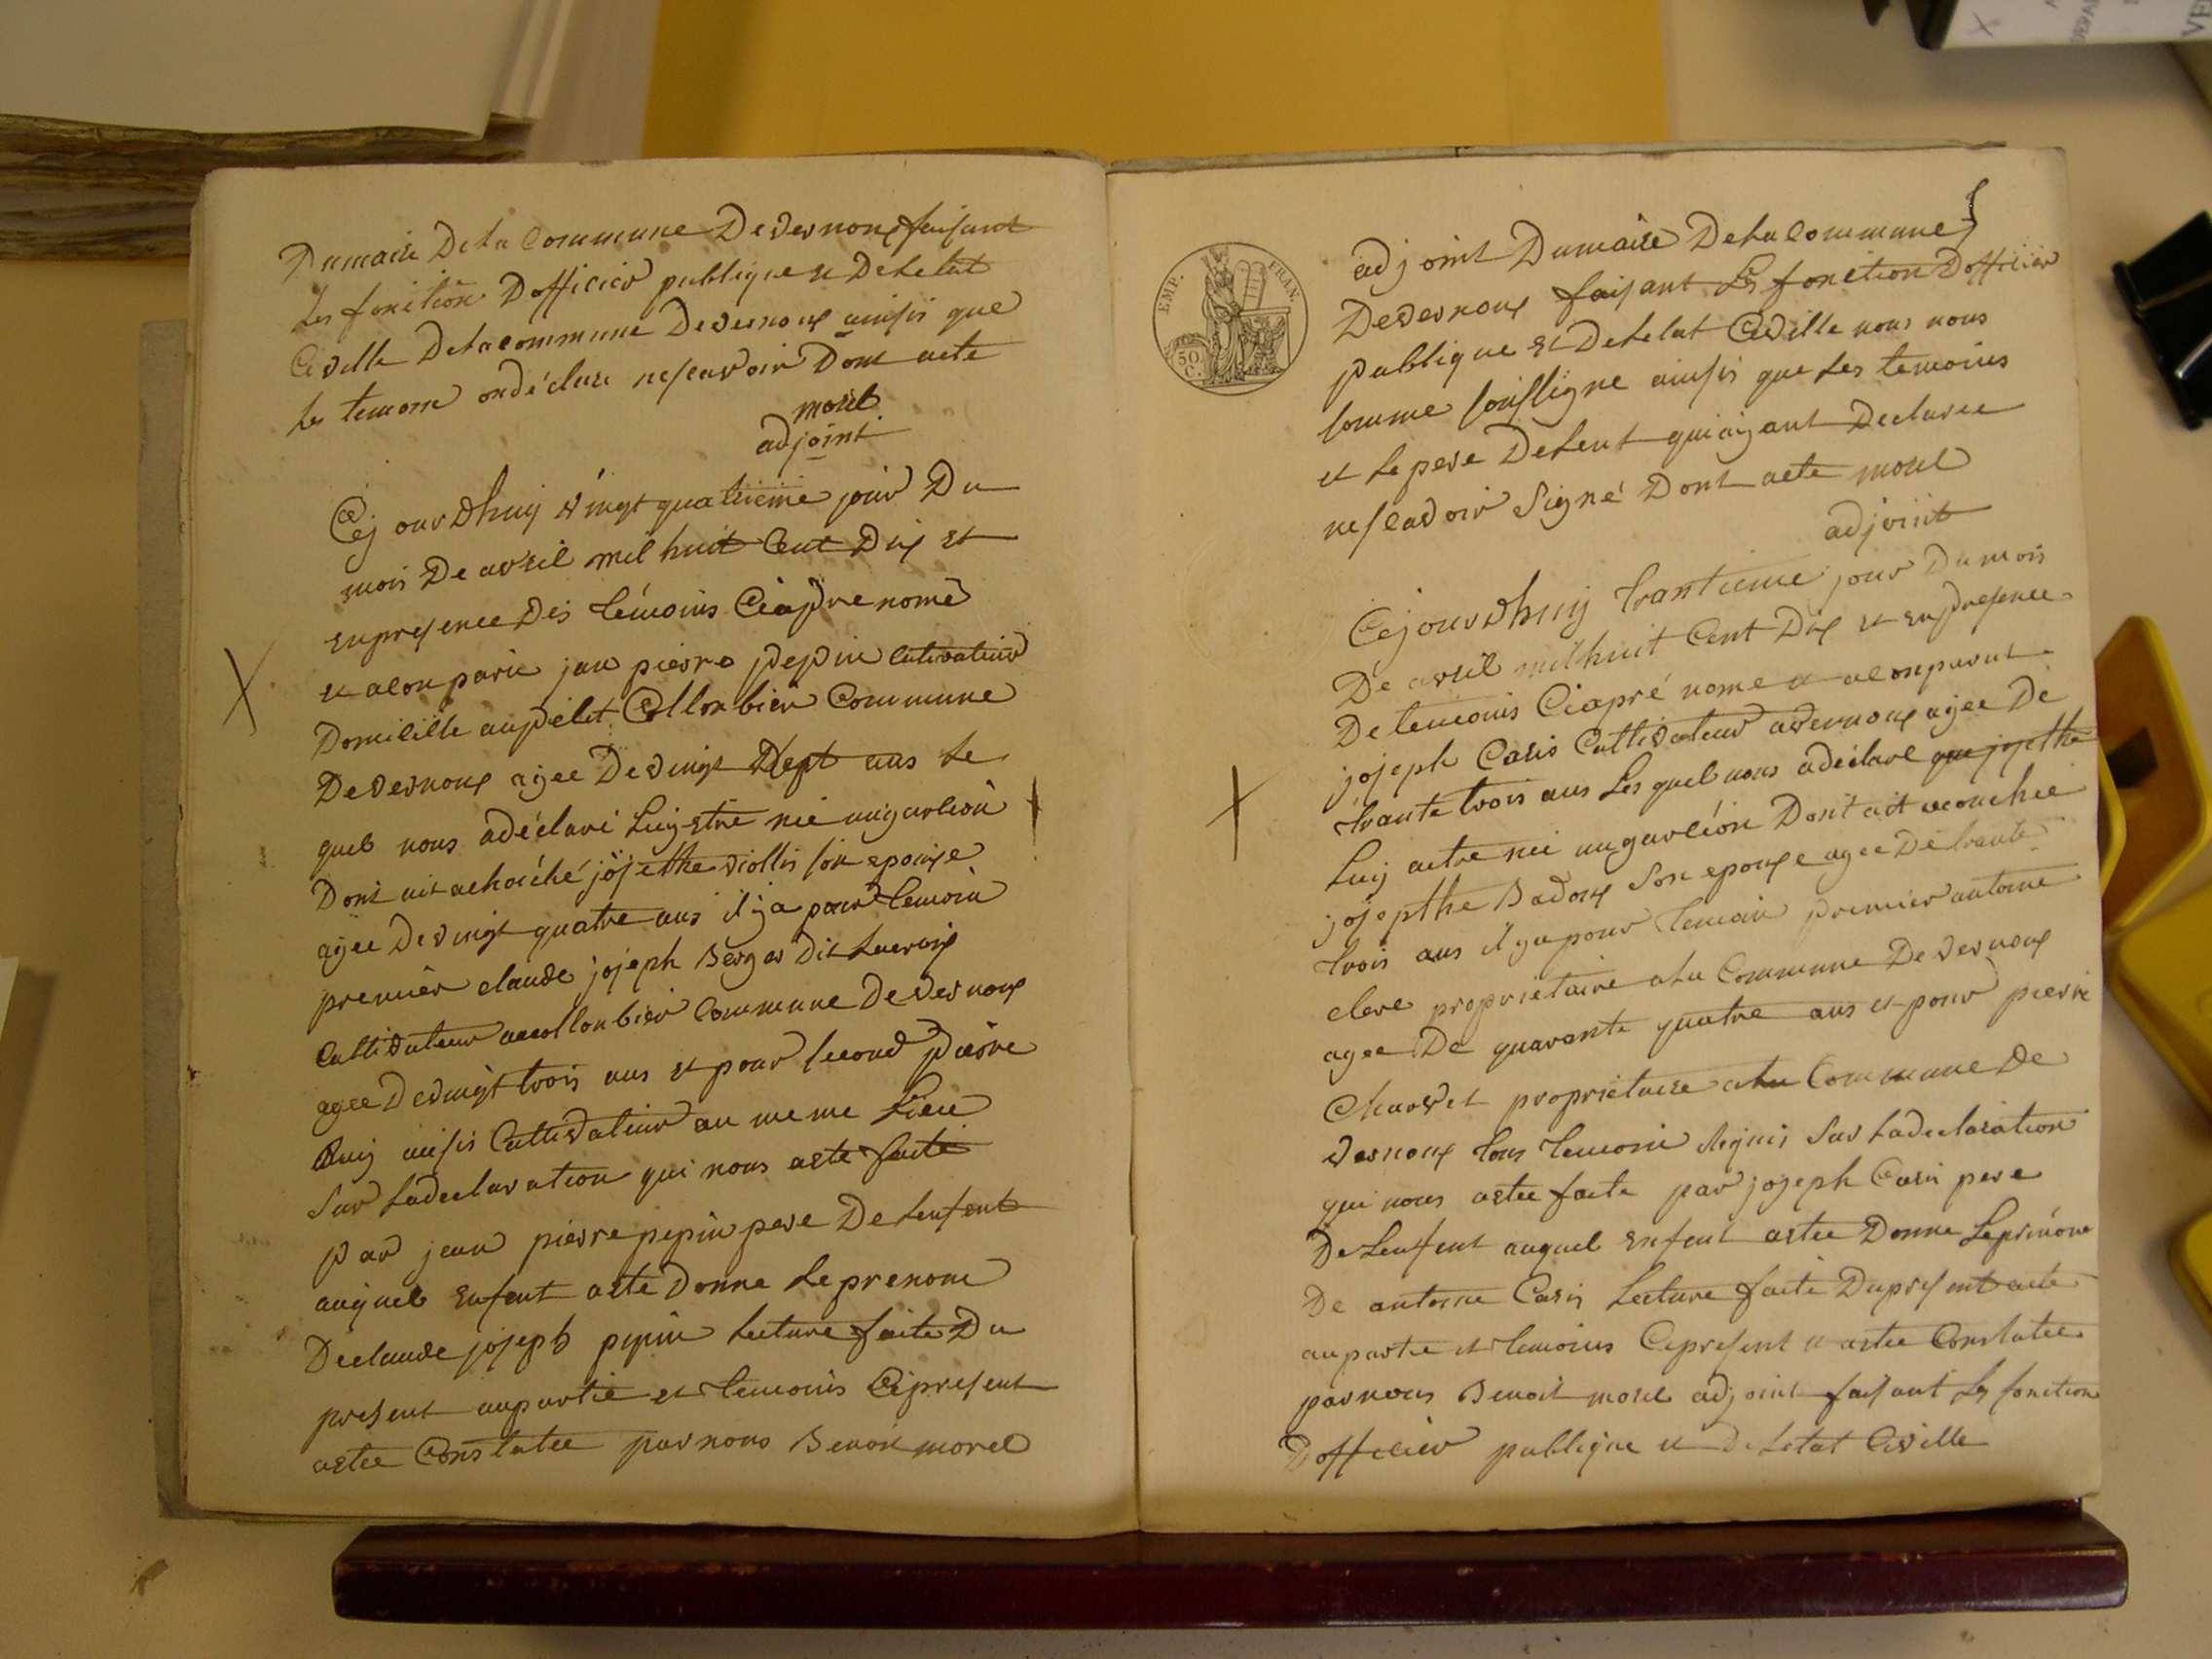 Dumaire Dela Commune Devernoux faisant
les fonction Dofficier publique et Deletat
Civille Delacommune Devernoux ainsis que
les temoin ondéclare nescavoir Dont acte
morel
adjoint
Cejourdhuij vingt quatrieme jour Du
mois De avril mil huit Cent Dix et
enpresence Des témoins Ciapre nomé
et aconparu jan pierre pepin Cutivateur
Domicillé aupetit Collonbier Commune
Devernoux agee Devingt Sept ans le
quel nous adéclaré luij etre neé un garcion
Dont ait achouché josethe viollis son epouse
agee Devingt quatre ans il ja pour temoin
premier claude joseph Berger Dit
Cultivateur aucollonbier Commune Devernoux
agee Devingt trois ans et pour second pierre
Buij ausis Cultivateur au meme Lieu
Sur ladeclaration qui nous aete faite
par jean pierre pepin pere Delenfent
auquel enfent aete Donne leprenom
Declaude joseph pepin lecture faite Du
present aupartie et temoins Cipresent
aetee Constatee parnous Benoit morel
EMP. FRAN.
50 C.
adjoint Dumaire Delacommune
Devernoux faisant Les fonction Dofficier
publique et Deletat Civille nous nous
somme soussigne ainsis que les temoins
et le pere Delent quiayant Declaree
nescavoir Signé Dont acte morel
adjoint
Cejourdhuij trantieme jour Dumois
De avril mil huit Cent Dix et enpresence
De temoins Ciapré nome et aconparut
joseph Caris Cultivateur avernoux agee De
trante trois ans Les quel nous adéclare que josepthe
luij aetre neé un garcéon Dont ait acouchee
josepthe Badoux Son epouse agee De trante
trois ans il ya pour temoin premier antoine
clere propriétaire ala Commune De vernoux
agee De quarante quatre ans et pour pierre
Charvet propriétaire ala Commune De
vernoux tous temoin Requis Sur ladeclaration
qui nous aetee faite par joseph Caris pere
Delenfent auquel enfent aetee Donne Leprénom
De antoine Caris Lecture faite Dupresent acte
aupartie et temoins Cepresent et aetee Constatee
parnous Benoit morel adjoint faisant Les fonction
Dofficier publique et Deletat Civille